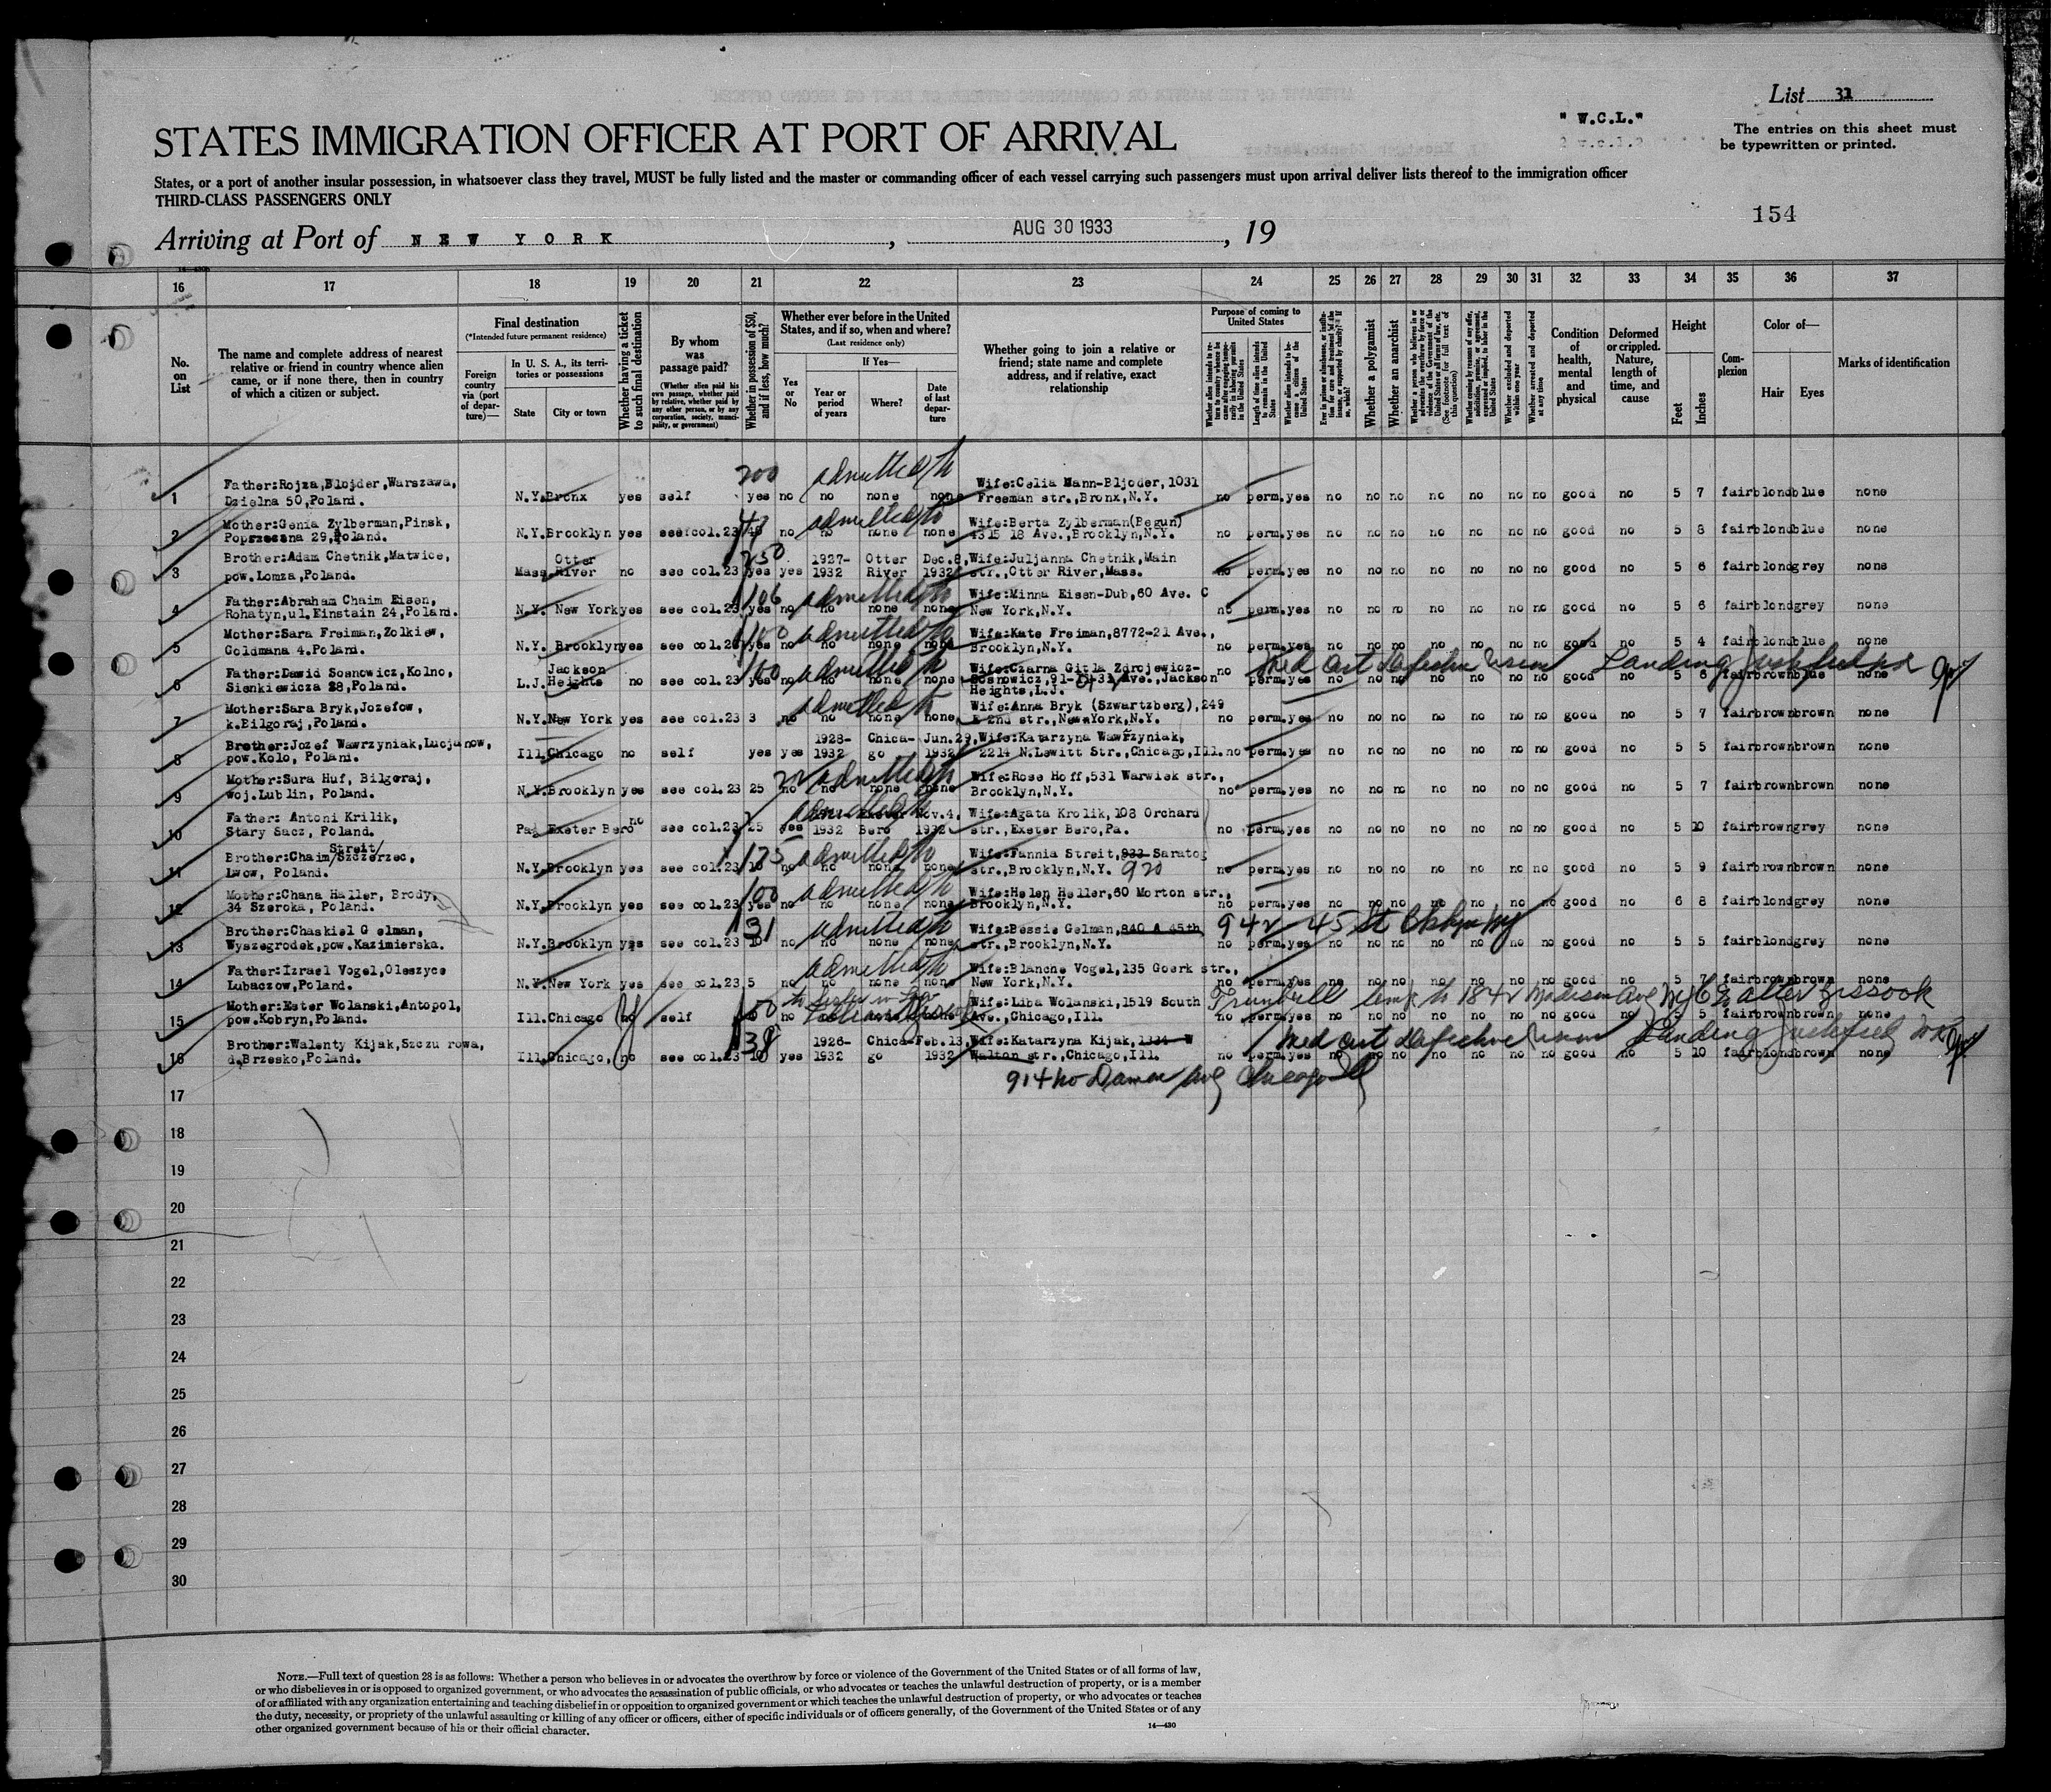 List 31
" W.C.L."
The entries on this sheet must
be typewritten or printed.
STATES IMMIGRATION OFFICER AT PORT OF ARRIVAL
States, or a port of another insular possession, in whatsoever class they travel, MUST be fully listed and the master or commanding officer of each vessel carrying such passengers must upon arrival deliver lists thereof to the immigration officer
THIRD-CLASS PASSENGERS ONLY
154
Arriving at Port of NEW YORK, AUG 30 1933, 19
16 17 18 19 20 21 22 23 24 25 26 27 28 29 30 31 32 33 34 35 36 37
No. on List
The name and complete address of nearest relative or friend in country whence alien came, or if none there, then in country of which a citizen or subject.
Final destination
(*Intended future permanent residence)
Foreign country via (port of departure)—
In U. S. A., its territories or possessions
State
City or town
Whether having a ticket to such final destination
By whom was passage paid?
(Whether alien paid his own passage, whether paid by relative, whether paid by any other person, or by any corporation, society, municipality, or government)
Whether in possession of $50, and if less, how much?
Whether ever before in the United States, and if so, when and where?
(Last residence only)
Yes or No
If Yes—
Year or period of years
Where?
Date of last departure
Whether going to join a relative or friend; state name and complete address, and if relative, exact relationship
Purpose of coming to United States
Whether a polygamist
Whether an anarchist
Condition of health, mental and physical
Deformed or crippled. Nature, length of time, and cause
Height
Feet
Inches
Complexion
Color of—
Hair
Eyes
Marks of identification
1 Father:Rojza,Blojder,Warszawa, Dzielna 50,Poland. N.Y. Bronx yes self 200 yes no no none none admitted Wife:Celia Mann-Bljoder, 1031 Freeman str.,Bronx,N.Y. no perm. yes no no no no no no no good no 5 7 fair blond blue none
2 Mother:Genia Zylberman,Pinsk, Poprzeczna 29,Poland. N.Y. Brooklyn yes see col.23 no no none none admitted Wife:Berta Zylberman(Begun) 4315 18 Ave.,Brooklyn,N.Y. no perm. yes no no no no no no no good no 5 8 fair blond blue none
3 Brother:Adam Chetnik,Matwice, pow.Lomza,Poland. Mass. Otter River no see col.23 250 yes yes 1927-1932 Otter River Dec.8, 1932 Wife:Juljanna Chetnik,Main str.,Otter River,Mass. no perm. yes no no no no no no no good no 5 6 fair blond grey none
4 Father:Abraham Chaim Eisen, Rohatyn,ul.Einstain 24,Poland. N.Y. New York yes see col.23 106 yes no no none none admitted Wife:Minna Eisen-Dub,60 Ave. C New York,N.Y. no perm. yes no no no no no no no good no 5 6 fair blond grey none
5 Mother:Sara Freiman,Zolkiew, Goldmana 4.Poland. N.Y. Brooklyn yes see col.23 100 yes no no none none admitted Wife:Kate Freiman,8772-21 Ave., Brooklyn,N.Y. no perm. yes no no no no no no no good no 5 4 fair blond blue none
6 Father:Dawid Sosnowicz,Kolno, Sienkiewicza 28,Poland. L.J. Jackson Heights no see col.23 100 yes no no none none admitted Wife:Czarna Gitla Zdrojewicz-Sosnowicz,91- Ave.,Jackson Heights,L.J. no perm. yes no no no no no no no good no 5 6 fair brown blue none Med Cert Defective Vision Landing
7 Mother:Sara Bryk,Jozefow, k.Bilgoraj,Poland. N.Y. New York yes see col.23 3 no no none none admitted Wife:Anna Bryk (Szwartzberg),249 E 2nd str.,New York,N.Y. no perm. yes no no no no no no no good no 5 7 fair brown brown none
8 Brother:Jozef Wawrzyniak,Lucjanow, pow.Kolo, Poland. Ill. Chicago no self yes yes 1928-1932 Chicago Jun.29, 1932 Wife:Katarzyna Wawrzyniak, 2214 N.Lewitt Str.,Chicago,Ill. no perm. yes no no no no no no no good no 5 5 fair brown brown none
9 Mother:Sura Huf, Bilgoraj, woj.Lublin, Poland. N.Y. Brooklyn yes see col.23 25 no no none none admitted Wife:Rose Hoff,531 Warwick str., Brooklyn,N.Y. no perm. yes no no no no no no no good no 5 7 fair brown brown none
10 Father: Antoni Krilik, Stary Sacz, Poland. Pa. Exeter Boro no see col.23 25 yes 1932 Boro Nov.4, 1932 admitted Wife:Agata Krolik, 108 Orchard str.,Exeter Bero,Pa. no perm. yes no no no no no no no good no 5 10 fair brown grey none
11 Brother:Chaim/Streit/Szczerzec, Lwow, Poland. N.Y. Brooklyn yes see col.23 125 no no none none admitted Wife:Fannia Streit,933 Saratog str.,Brooklyn,N.Y. 920 no perm. yes no no no no no no no good no 5 9 fair brown brown none
12 Mother:Chana Haller, Brody, 34 Szeroka, Poland. N.Y. Brooklyn yes see col.23 100 yes no no none none admitted Wife:Helen Heller,60 Morton str., Brooklyn,N.Y. no perm. yes no no no no no no no good no 6 8 fair blond grey none
13 Brother:Chaskiel G elman, Wyszegrodek,pow.Kazimierska. N.Y. Brooklyn yes see col.23 31 10 no no none none admitted Wife:Bessie Gelman,840 A 45th str.,Brooklyn,N.Y. 942 45 St Bklyn NY no perm. yes no no no no no no no good no 5 5 fair blond grey none
14 Father:Izrael Vogel,Oleszyce Lubaczow,Poland. N.Y. New York yes see col.23 5 no no none none admitted Wife:Blanche Vogel,135 Goerk str., New York,N.Y. no perm. yes no no no no no no no good no 5 7 fair brown brown none
15 Mother:Ester Wolanski,Antopol, pow.Kobryn,Poland. Ill. Chicago no self 50 no to Sister in Law Wife:Liba Wolanski,1519 South Trumbull Ave.,Chicago,Ill. 1842 Madison Ave NYC no perm. yes no no no no no no no good no 5 5 fair brown brown none
16 Brother:Walenty Kijak,Szczu rowa, d.Brzesko,Poland. Ill. Chicago, no see col.23 38 10 yes 1926-1932 Chicago Feb.13, 1932 Wife:Katarzyna Kijak,1334 W Walton str.,Chicago,Ill. no perm. yes no no no no no no no good no 5 10 fair blond brown none Med Cert Defective Vision Landing
914 No Damen Ave Chicago Ill
17
18
19
20
21
22
23
24
25
26
27
28
29
30
NOTE.—Full text of question 28 is as follows: Whether a person who believes in or advocates the overthrow by force or violence of the Government of the United States or of all forms of law,
or who disbelieves in or is opposed to organized government, or who advocates the assassination of public officials, or who advocates or teaches the unlawful destruction of property, or is a member
of or affiliated with any organization entertaining and teaching disbelief in or opposition to organized government or which teaches the unlawful destruction of property, or who advocates or teaches
the duty, necessity, or propriety of the unlawful assaulting or killing of any officer or officers, either of specific individuals or of officers generally, of the Government of the United States or of any
other organized government because of his or their official character.
14—430